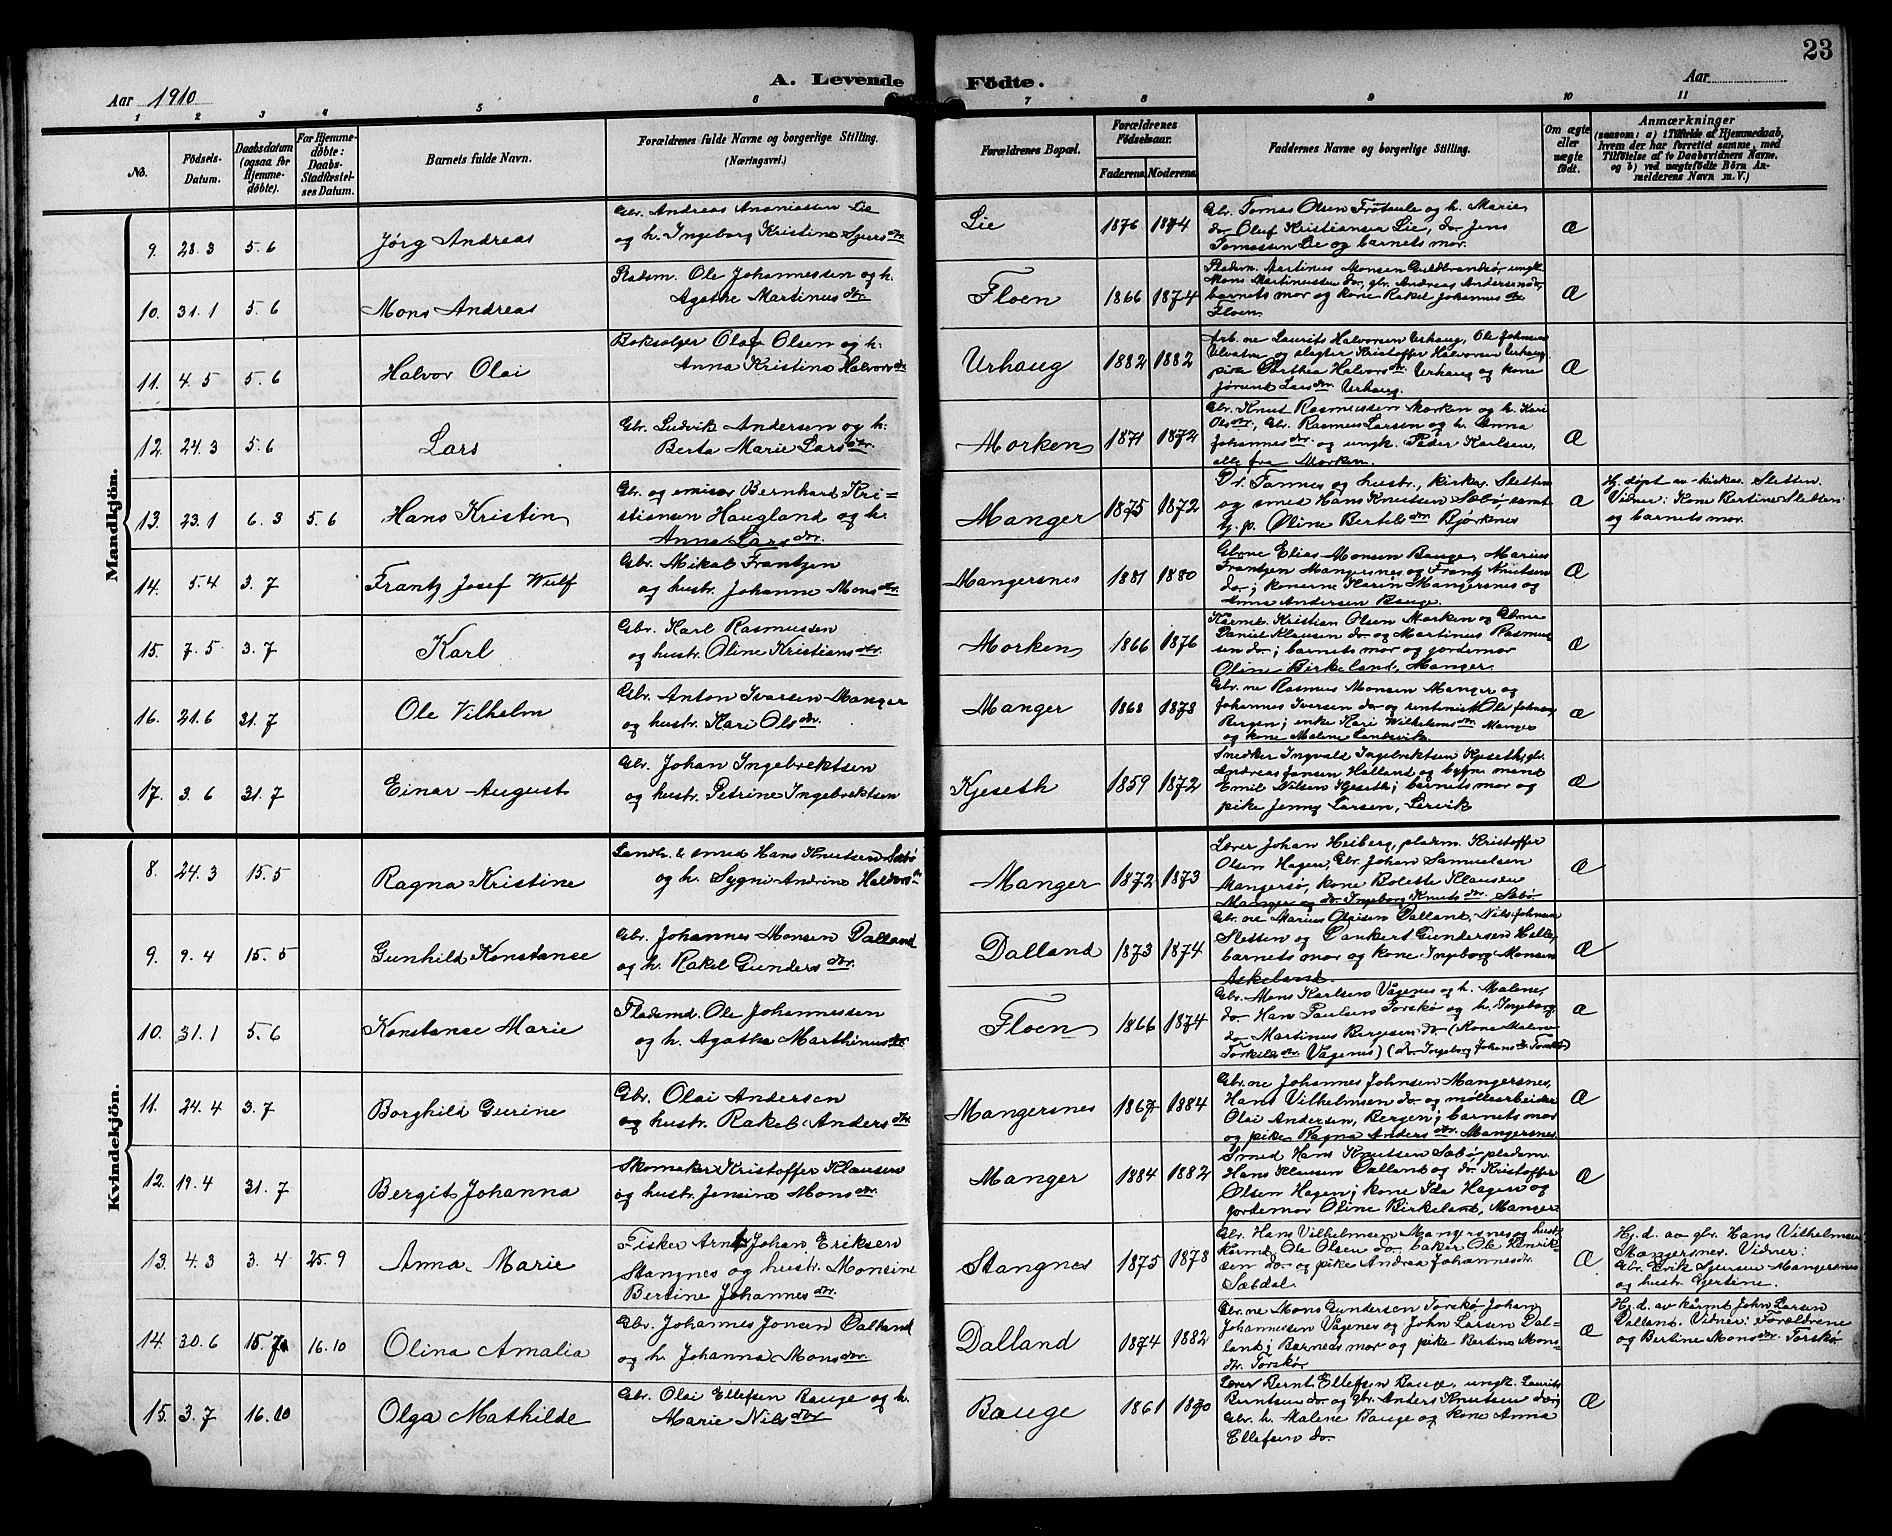 23
A. Levende Fødte.
Aar 1910
Aar
1 2 3 4 5 6 7 8 9 10 11
No.
Fødsels-
Datum.
Daabsdatum
(ogsaa for
Hjemme-
døbte).
For Hjemme-
døbte:
Daabs-
Stadfæstel-
ses Datum.
Barnets fulde Navn.
Forældrenes fulde Navne og borgerlige Stilling.
(Næringsvei.)
Forældrenes Bopæl.
Forældrenes
Fødselsaar.
Faderens Moderens
Faddernes Navne og borgerlige Stilling.
Om ægte
eller
uægte
født.
Anmærkninger
(saasom: a) i Tilfælde af Hjemmedaab,
hvem der har forrettet samme, med
Tilføielse af to Daabsvidners Navne,
og b) ved uægtefødte Børn An-
melderens Navn m. V.)
Mandkjön.
9. 28.3 5.6 Jørg Andreas
Gbr. Andreas Ananiassen Lie
og h. Ingeborg Kristine Sjursdtr.
Lie 1876 1874
Gbr. Tomas Olsen Frotveit og h. Marie,
do Oluf Kristiansen Lie, do Jens
Tomassen Lie og barnets mor.
Æ
10. 31.1 5.6 Mons Andreas
Pladsm. Ole Johannessen og h.
Agathe Martinusdtr.
Floen 1866 1874
Pladsm. Martinus Monsen Guldbrandsø, ungk.
Mons Martinussen do, gbr. Andreas Andersen do,
barnets mor og kone Rakel Johannesdtr.
Floen.
Æ
11. 4.5 5.6 Halvor Olai
Boksælger Olaf Olsen og h.
Anna Kristine Halvorsdtr.
Urhaug 1882 1882
Arb.ne Laurits Halvorsen Urhaug, Ole Johnsen
Ulvatn og slagter Kristoffer Halvorsen Urhaug
pike Barthea Halvorsdtr. Urhaug og kone
Jørund Larsdtr. Urhaug.
Æ
12. 24.3 5.6 Lars
Gbr. Ludvik Andersen og h.
Berta Marie Larsdtr.
Morken 1871 1872
Gbr. Knut Rasmussen Morken og h. Kari
Olsdtr., Gbr. Rasmus Larsen og h. Anna
Johannesdtr. og ungk. Peder Karlsen,
alle fra Morken.
Æ
13. 23.1 6.3 5.6 Hans Kristin
Gbr. og emisær Bernhard Kri-
stiansen Haugland og h.
Anna Larsdtr.
Manger 1875 1872
Dr. Tannes og hustr., kirkes. Sletten
og smed Hans Knutsen Sæbø, samt
tj. p. Oline Bertelsdtr. Bjørknes
Æ
Hj. døpt av kirkes. Sletten.
Vidner: Kone Bertine Sletten
og barnets mor.
14. 5.4 3.7 Frantz Josef Wulf
Gbr. Mikal Frantzen
og hustr. Johanne Monsdtr.
Mangersnes 1881 1880
Gbrne Elias Monsen Bauge, Marius
Frantzen Mangersnes og Frantz Knutsen
do; konerne Karin Mangersnes og
Anna Andersen Bauge.
Æ
15. 7.5 3.7 Karl
Gbr. Karl Rasmussen
og hustr. Oline Kristiansdtr.
Morken 1866 1876
Kårmd. Kristian Olsen Morken og Gbrne
Daniel Klausen do og Martinus Rasmus-
sen do; barnets mor og jordemor
Oline Birkeland, Manger.
Æ
16. 21.6 31.7 Ole Vilhelm
Gbr. Anton Ivarsen Manger
og hustr. Kari Olsdtr.
Manger 1868 1878
Gbr.ne Rasmus Monsen Manger og
Johannes Iversen do og rentenist Ole Johnsen
Bergen; enke Kari Wilhelmsdtr. Manger
og kone Malene Landsvik.
Æ
17. 3.6 31.7 Einar August
Gbr. Johan Ingebrektsen
og hustr. Petrine Ingebrektsen
Kjeseth 1859 1872
Snedker Ingvald Ingebrektsen Kjeseth, gbr.
Andreas Jansen Halland og bygn. mand
Emil Nilsen Kjeseth; barnets mor og
pike Jenny Larsen, Lervik
Æ
Kvindekjön.
8. 24.3 15.5 Ragna Kristine
Landh. & smed Hans Knutsen Sæbø
og h. Sygni Andrine Haldorsdtr.
Manger 1872 1873
Lærer Johan Heiberg, pladsm. Kristoffer
Olsen Hagen, Gbr. Johan Samuelsen
Mangersø, kone Bolette Klausen
Manger og do Ingeborg Knutsdtr. Sæbø.
Æ
9. 9.4 15.5 Gunhild Konstanse
Gbr. Johannes Monsen Dalland
og h. Rakel Gundersdtr.
Dalland 1873 1874
Gbr.ne Marius Olaisen Dalland, Nils Johnsen
Sletten og Dankert Gundersen Halle,
barnets mor og kone Ingeborg Monsen
Askeland
Æ
10. 31.1 5.6 Konstanse Marie
Pladsmd. Ole Johannessen
og h. Agathe Marthinusdtr.
Floen 1866 1874
Gbr. Mons Karlsen Vågenes og h. Malene,
do Han Paulsen Torskø og h. Ingeborg,
do Martinus Bergesen do (Kone Malene
Torkelsdtr. Vågenes) (do Ingeborg Johansdtr Torskø)
Æ
11. 24.4 3.7 Borghild Gurine
Gbr. Olai Andersen
og hustr. Rakel Andersdtr.
Mangersnes 1867 1884
Gbr.ne Johannes Johnsen Mangersnes,
Hans Vilhelmsen do og møllearbeider
Olai Andersen, Bergen; barnets mor
og pike Ragna Andersdtr. Mangersnes.
Æ
12. 19.4 31.7 Bergit Johanna
Skomaker Kristoffer Klausen
og hustr. Jensine Monsdtr.
Manger 1884 1882
Smed Hans Knutsen Sæbø, pladsm.
Hans Klausen Dalland og do Kristoffer
Olsen Hagen; kone Ida Hagen og
jordemor Oline Birkeland, Manger.
Æ
13. 4.3 3.4 25.9 Anna Marie
Fisker Arnt Johan Eriksen
Stangnes og hustr. Monsine
Bertine Johannesdtr.
Stangnes 1875 1878
Gbr. Hans Vilhelmsen Mangersnes og hustr.
kårmd. Ole Olsen do baker Ole Henrik-
sen do og pike Andrea Johannesdtr.
Sæbdal.
Æ
Hj.d. av gbr. Hans Vilhelmsen
Mangersnes. Vidner:
Gbr. Erik Sjursen Mangersnes
og hustr. Gjertine.
14. 30.6 15.7 16.10 Olina Amalia
Gbr. Johannes Jonsen Dalland
og h. Johanna Monsdtr.
Dalland 1874 1882
Gbr.ne Mons Gundersen Torskø, Johan
Johannessen Vågenes og John Larsen Dal-
land; Barneds mor og pike Bertine Mons-
dtr. Torskø
Æ
Hj.d. av kårmd John Larsen
Dalland. Vidner: Forældrene
og Bertine Monsdtr. Torskø.
15. 3.7 16.10 Olga Mathilde
Gbr. Olai Ellefsen Bauge og h.
Marie Nilsdtr
Bauge 1861 1870
Lærer Bernt Ellefsen Bauge, ungk. Laurits
Berntsen do og gbr. Anders Knutsen do;
Gbr. h. Malene Bauge og kone Anna
Ellefsen do
Æ